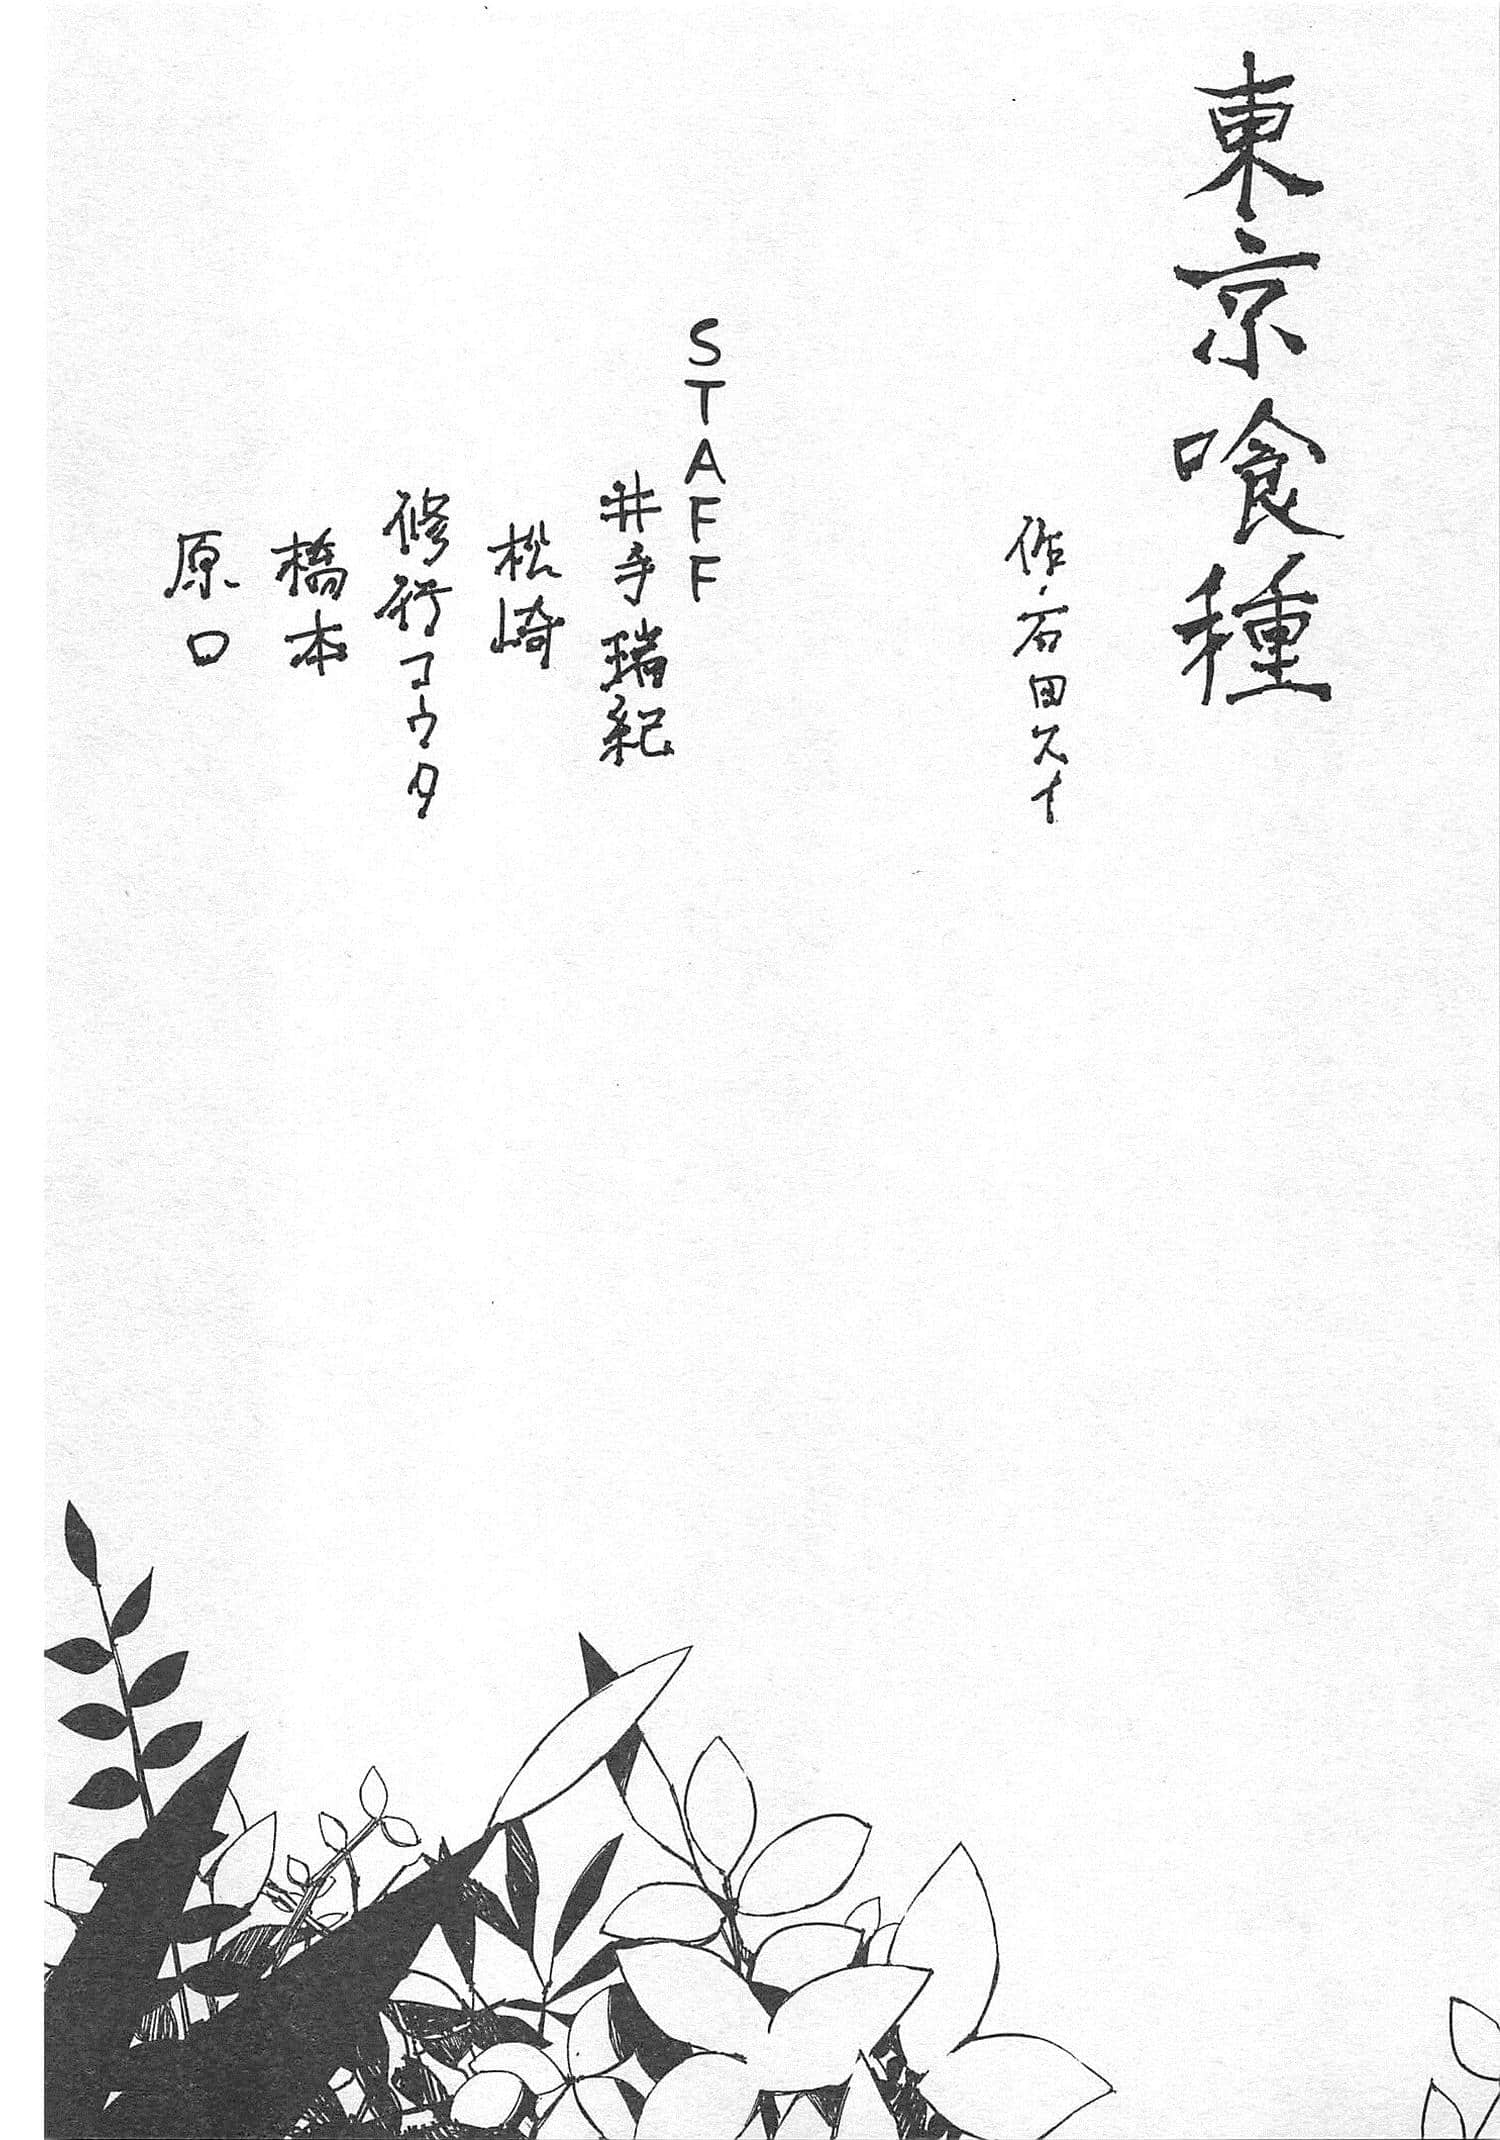 東京喰種
作・石田スイ
STAFF
井手瑞紀
松崎
修行コウタ
橋本
原口